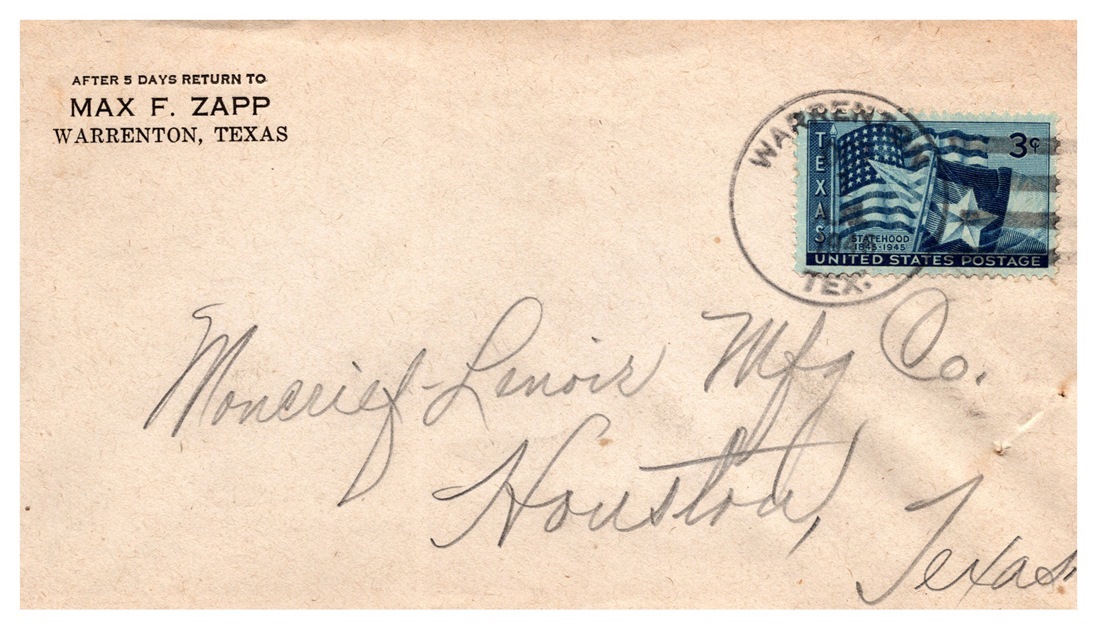 AFTER 5 DAYS RETURN TO
MAX F. ZAPP
WARRENTON, TEXAS
WARRENTON
TEX.
TEXAS
3¢
STATEHOOD
1845-1945
UNITED STATES POSTAGE
Moncrief-Lenoir Mfg Co.
Houston,
Texas